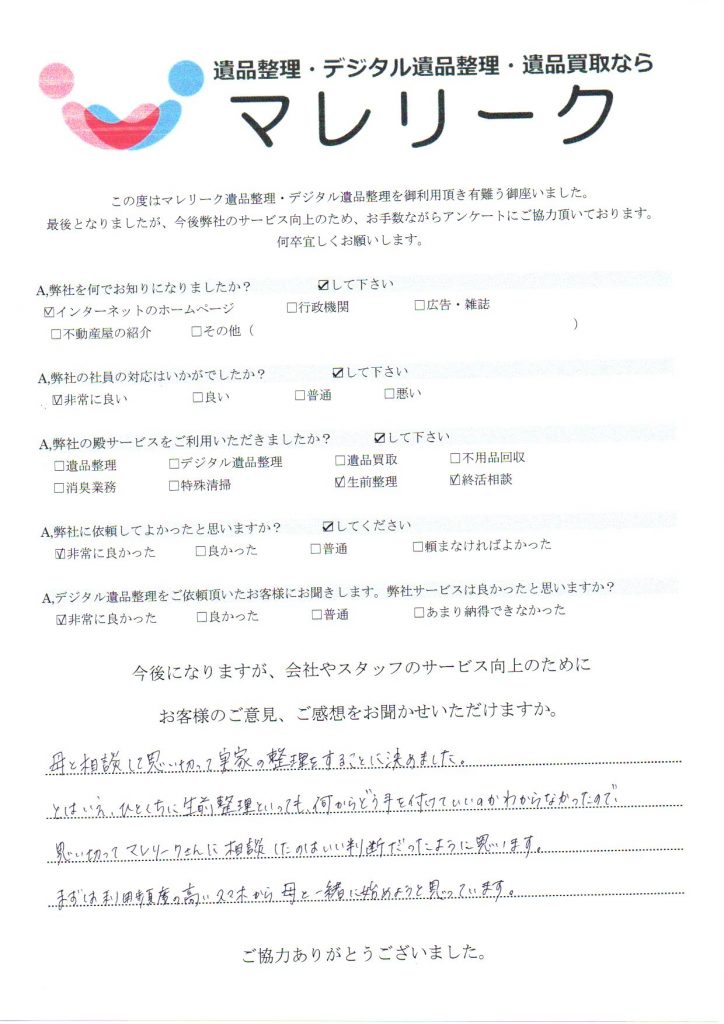 遺品整理・デジタル遺品整理・遺品買取なら
マレリーク
この度はマレリーク遺品整理・デジタル遺品整理を御利用頂き有難う御座いました。
最後となりましたが、今後弊社のサービス向上のため、お手数ながらアンケートにご協力頂いております。
何卒宜しくお願いします。
A,弊社を何でお知りになりましたか？ ☑して下さい
☑インターネットのホームページ □行政機関 □広告・雑誌
□不動産屋の紹介 □その他（ ）
A,弊社の社員の対応はいかがでしたか？ ☑して下さい
☑非常に良い □良い □普通 □悪い
A,弊社の殿サービスをご利用いただきましたか？ ☑して下さい
□遺品整理 □デジタル遺品整理 □遺品買取 □不用品回収
□消臭業務 □特殊清掃 ☑生前整理 ☑終活相談
A,弊社に依頼してよかったと思いますか？ ☑してください
☑非常に良かった □良かった □普通 □頼まなければよかった
A,デジタル遺品整理をご依頼頂いたお客様にお聞きします。弊社サービスは良かったと思いますか？
☑非常に良かった □良かった □普通 □あまり納得できなかった
今後になりますが、会社やスタッフのサービス向上のために
お客様のご意見、ご感想をお聞かせいただけますか。
母と相談して思い切って実家の整理をすることに決めました。
とはいえ、ひとくちに生前整理といっても、何からどう手を付けていいのかわからなかったので、
思い切ってマレリークさんに相談したのはいい判断だったように思います。
まずは利用頻度の高いスマホから母と一緒に始めようと思っています。
ご協力ありがとうございました。